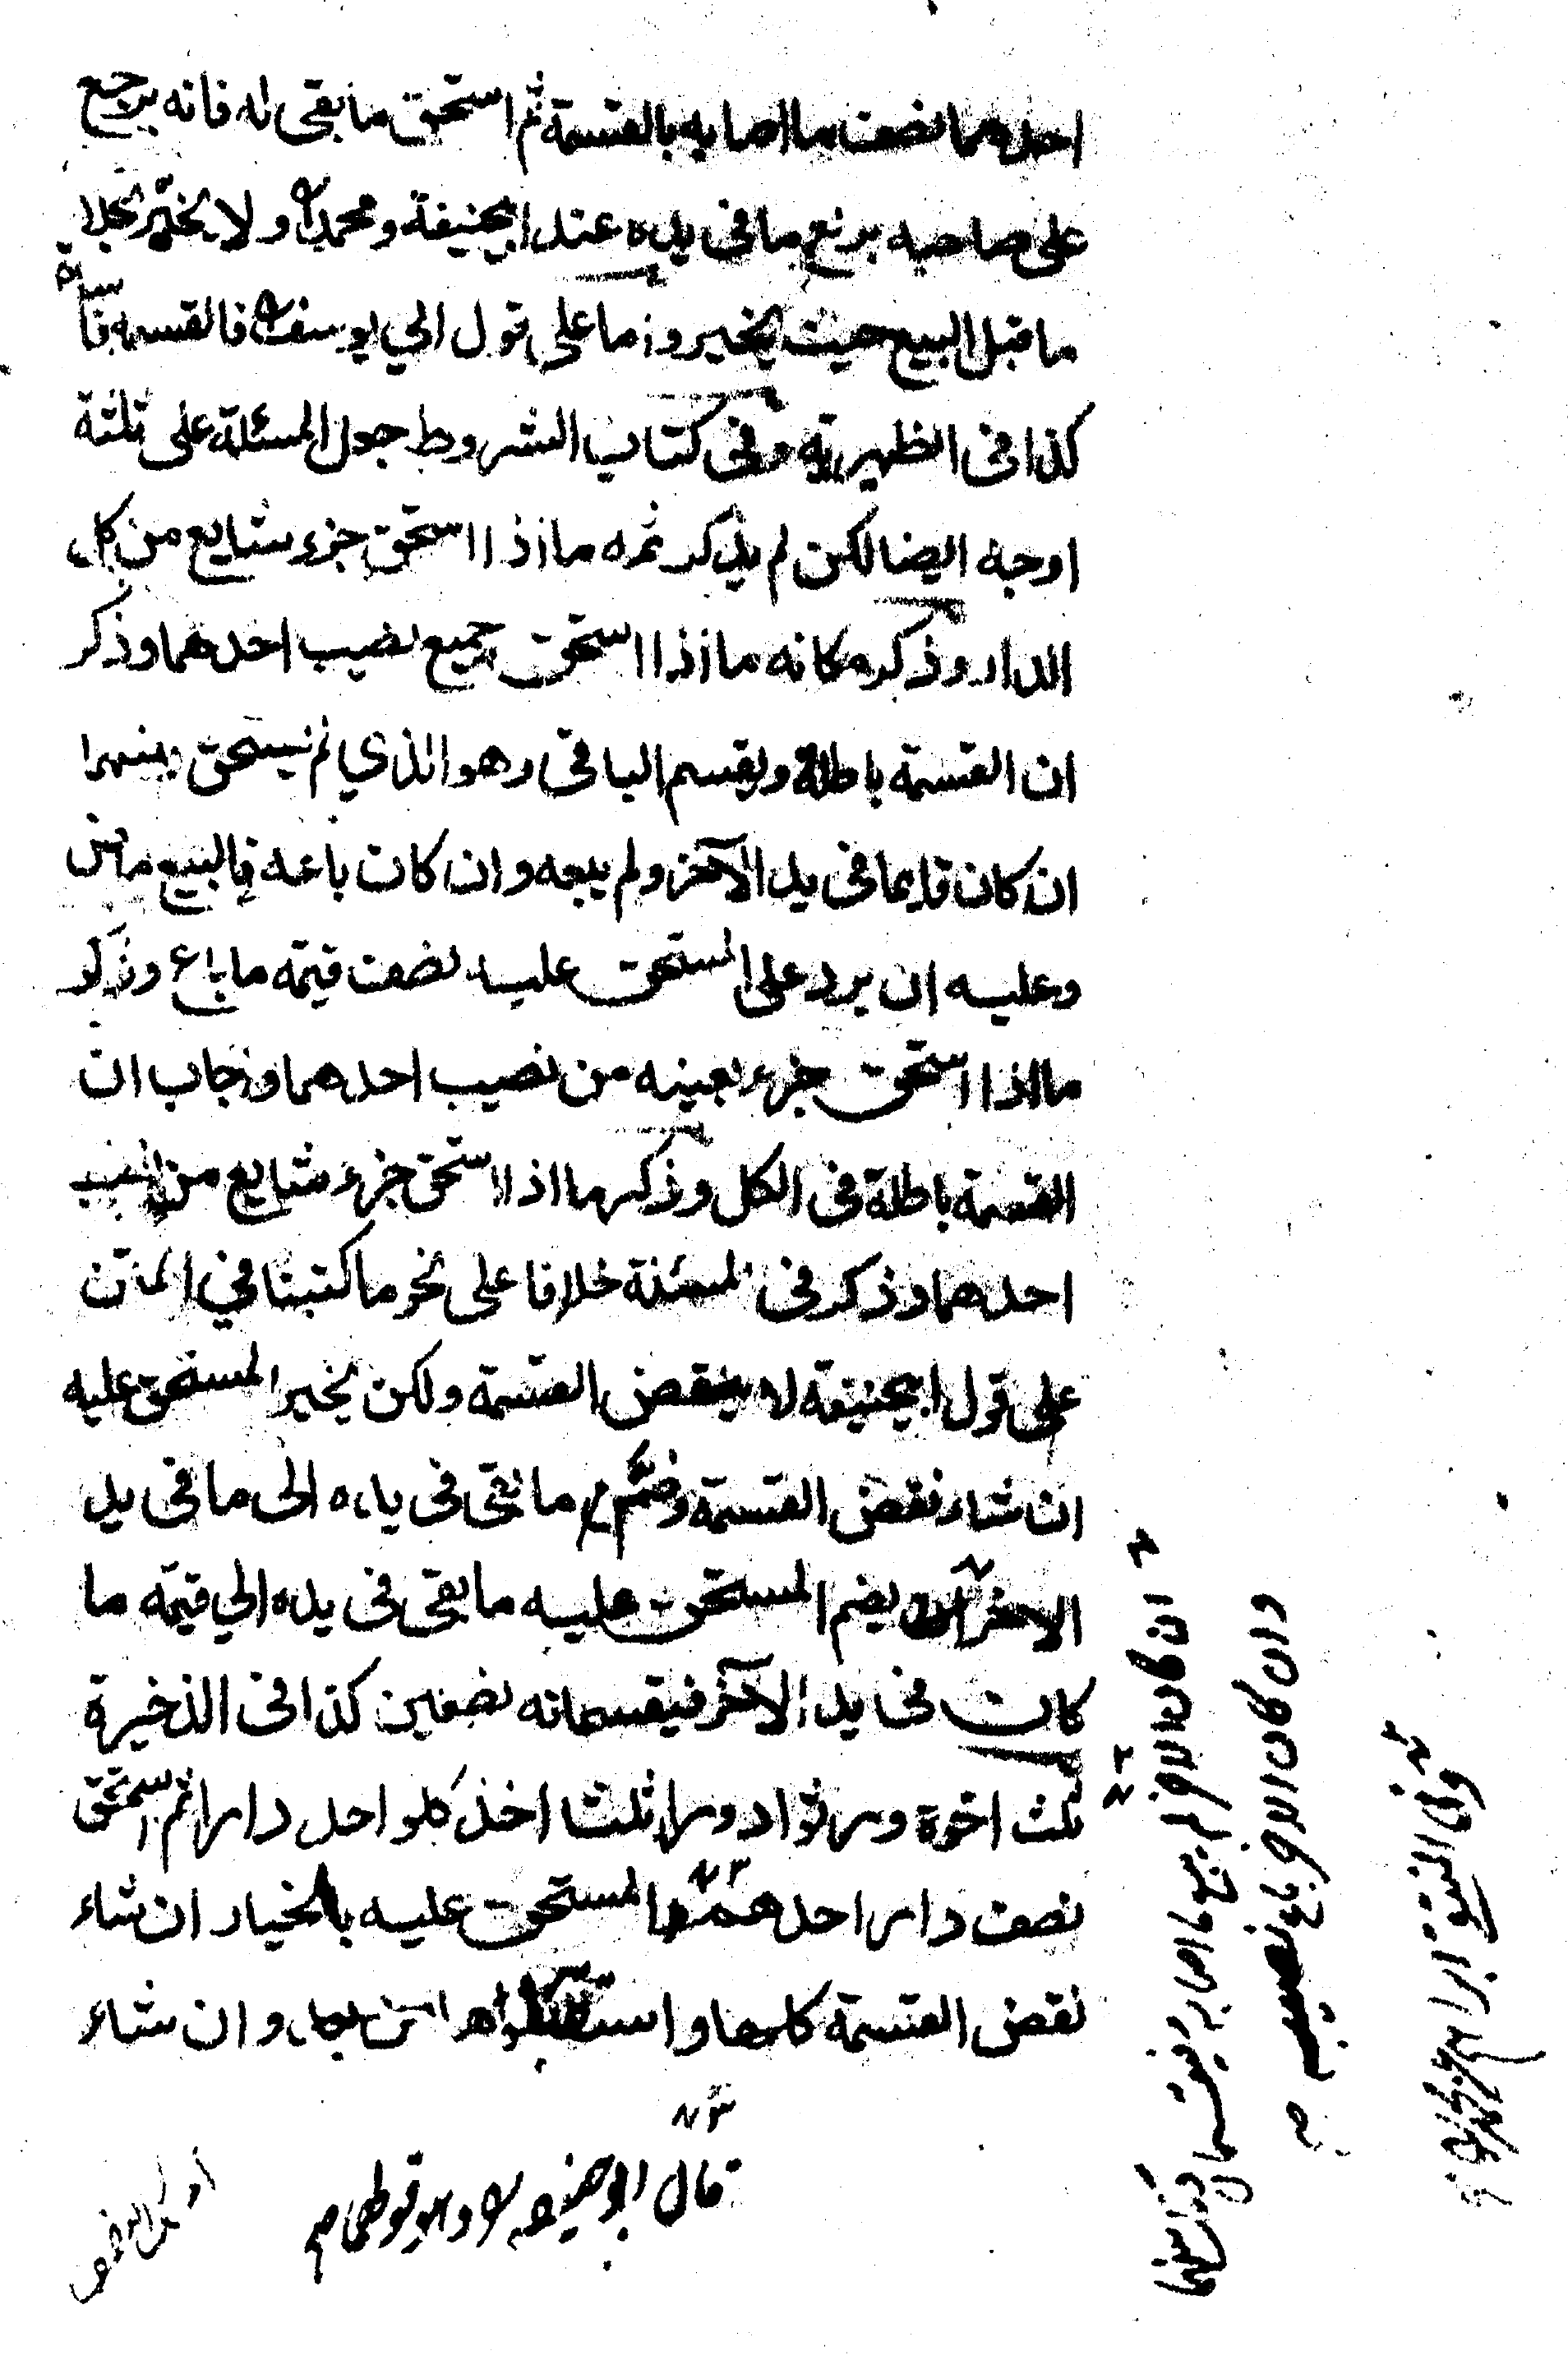 احدهما نصف ما اصابه بالقسمة ثم استحق ما بقى له فانه يرجع
على صاحبه بربع ما فى يده عند ابيحنيفة ومحمد ولا يخير بخلا
ما قبل البيع حيث يخير واما على قول ابي يوسف فالقسمه فا سدة
كذا فى الظهيرية وفى كتاب الشروط جعل المسئلة على ثلثة
اوجه ايضا لكن لم يذكر ثمه ما اذا استحق جزء شايع من كل
الدار وذكر مكانه ما اذا استحق جميع نصيب احدهما وذكر
ان القسمة باطلة ويقسم الباقى وهو الذي لم يستحق بينهما
ان كان قايما فى يد الآخر ولم يبعه وان كان باعه فالبيع ماض
وعليه ان يرد على المستحق عليه نصف قيمة ما باع وذكر
ما اذا استحق جزء بعينه من نصيب احدهما واجاب ان
القسمة باطلة فى الكل وذكر ما اذا استحق جزء شايع من نصيب
احدهما وذكر فى المسئلة خلافا على نحو ما كتبنا في المتن
على قول ابيحنيفة لا ينقض القسمة ولكن يخير المستحق عليه
ان شاء نقض القسمة وضم ما بقى فى يده الى ما فى يد
الآخر يضم المستحق عليه ما بقى فى يده الي قيمة ما
كان فى يد الآخر فيقسمانه نصفين كذا فى الذخيرة
ثلث اخوة ورثوا دورا ثلثا اخذ كل واحد دارا ثم استحق
نصف دار احدهم المستحق عليه بالخيار ان شاء
نقض القسمة كلها وان شاء
قال ابو حنيفه
ان كان الآخر لم يبع ما اصابه فيقسمان
وان كان الآخر باع نصيبه
وفى